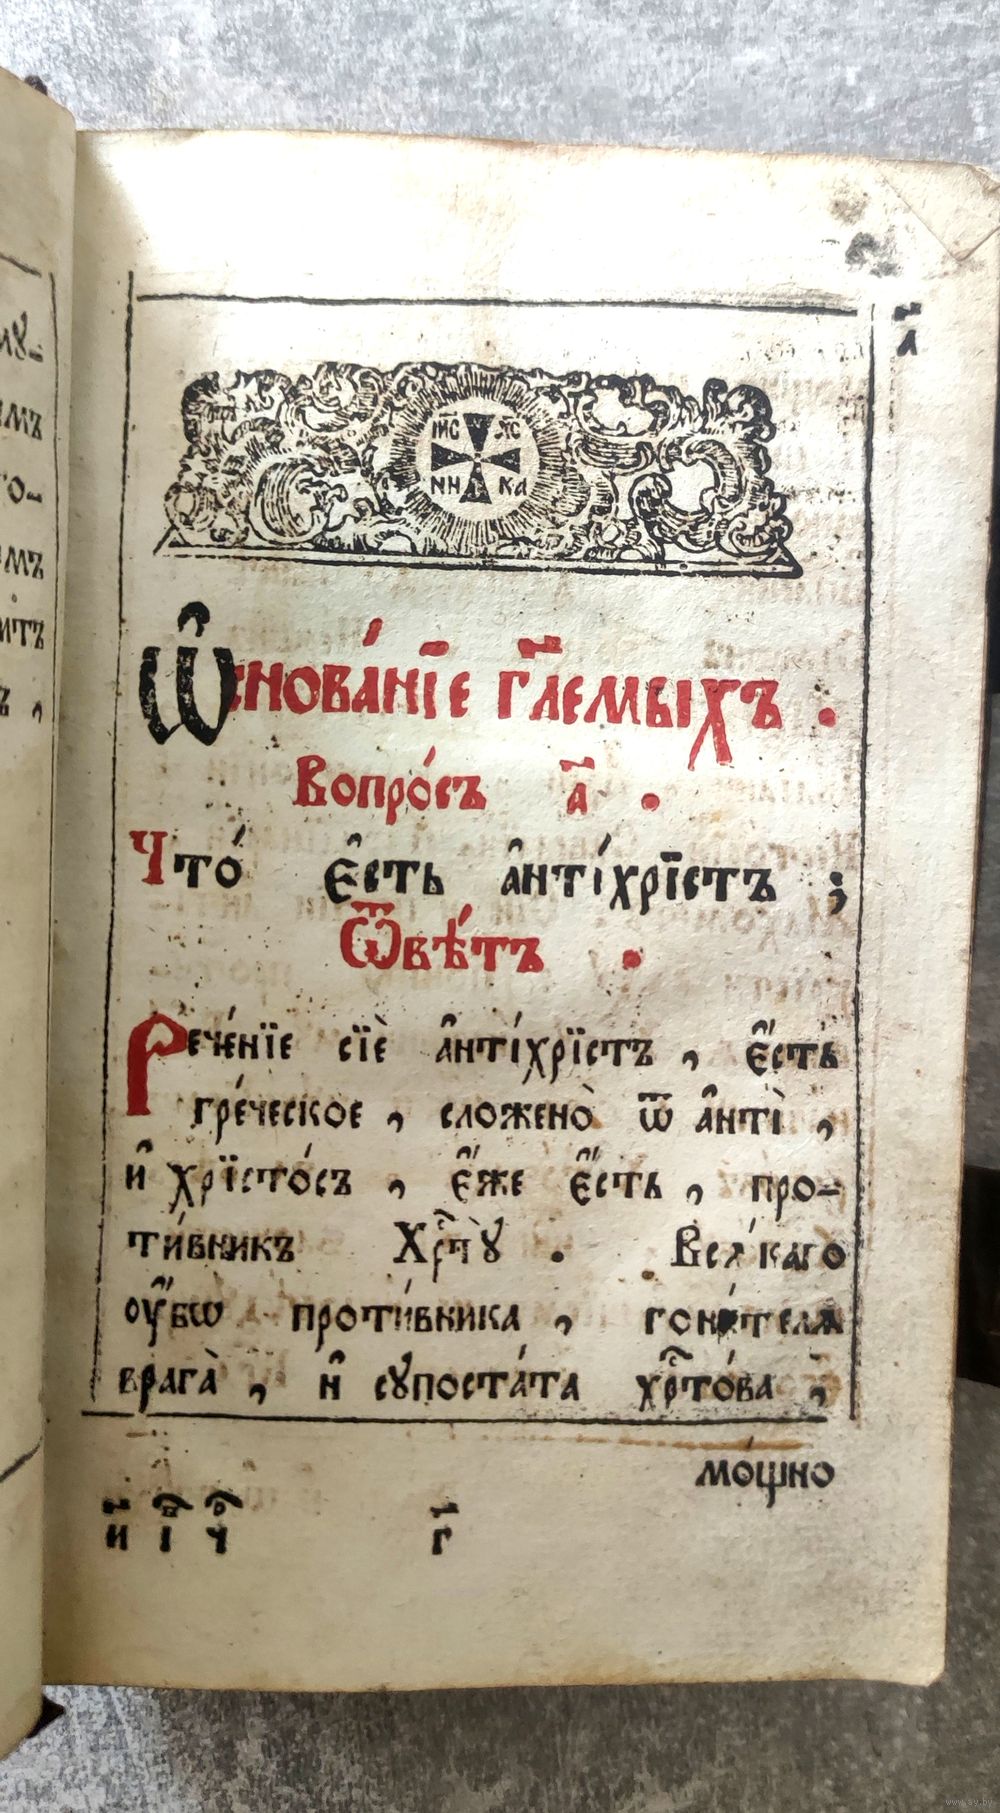 л҃
І҆И҃С Х҃С
НИ КА
Ѡ҆снова́нїе гл҃емыхъ .
Вопро́съ а҃ .
Что́ є҆сть а҆нті́хрїстъ ;
Ѿвѣ́тъ .
Рече́нїе сїѐ а҆нті́хрїстъ , є҆́сть
гре́ческое , сложено̀ ѿ а҆нтѝ ,
и҆ хрїсто́съ , є҆́же є҆́сть , про-
ти́вникъ Хрⷭ҇тꙋ̀ . Всѧ́каго
оу҆́бѡ проти́вника , гони́телѧ
врага̀ , и҆ сꙋпоста́та хрⷭ҇то́ва ,
мо́щно
г҃